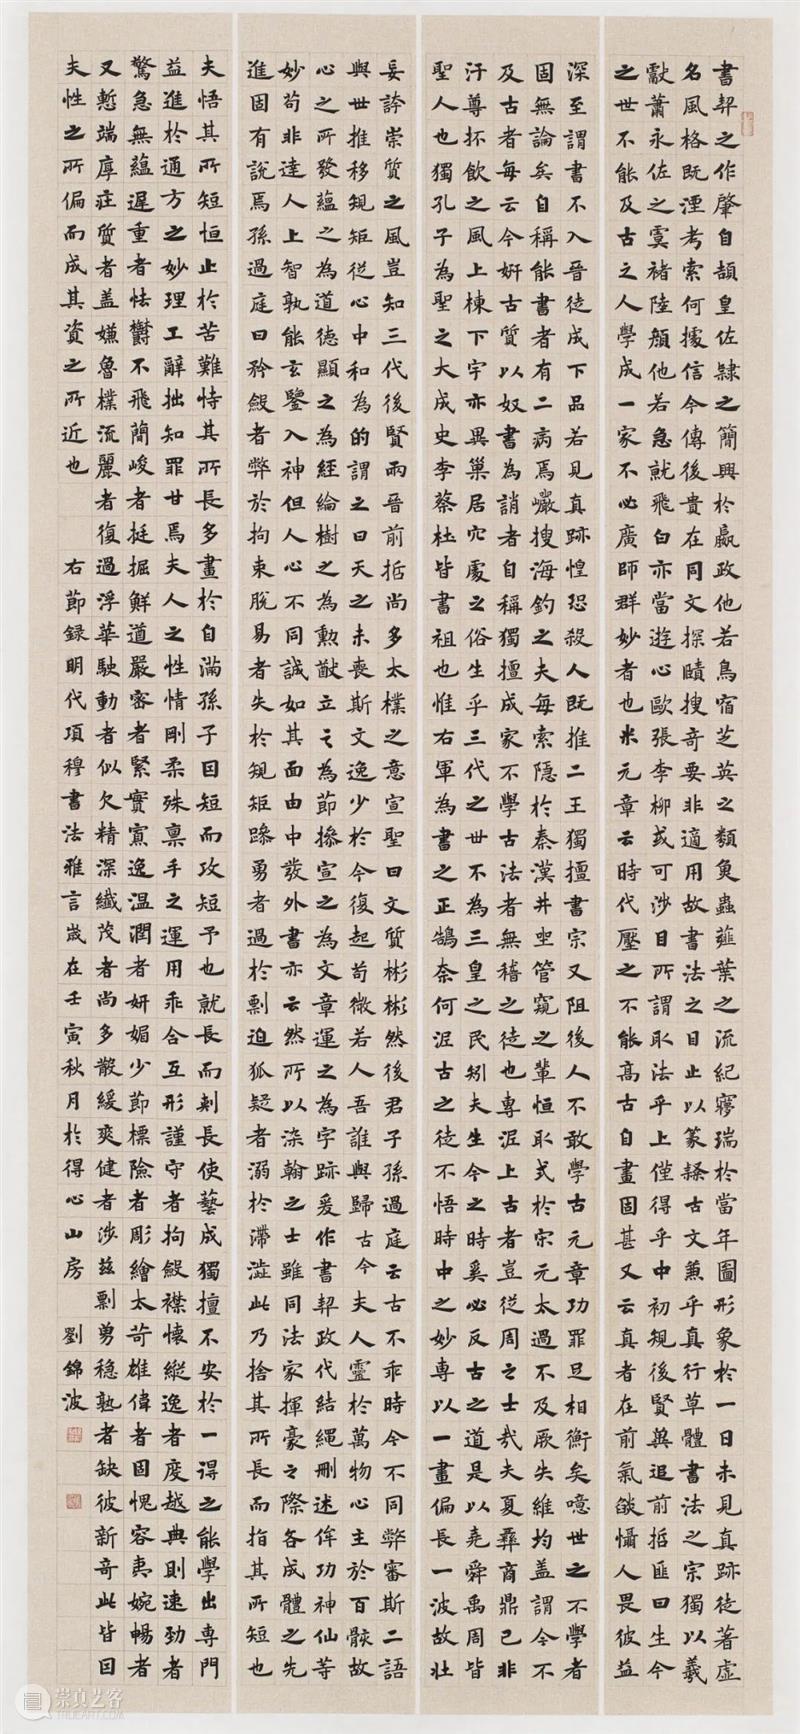 書契之作肇自頡皇佐隷之簡興於嬴政他若鳥宿芝英之類魚蟲薤葉之流紀夢瑞於當年圖形象於一日未見真跡徒著虛
名風格既湮考索何據信今傳後貴在同文探賾搜奇要非適用故書法之目止以篆隷古文兼乎真行草體書法之宗獨以羲
獻蕭永佐之虞褚陸顏他若急就飛白亦當遊心歐張李柳或可涉目所謂取法乎上僅得乎中初規後賢冀追前哲匪曰生今
之世不能及古之人學成一家不必廣師群妙者也米元章云時代壓之不能高古自畫固甚又云真者在前氣燄懾人畏彼益
深至謂書不入晉徒成下品若見真跡惶恐殺人既推二王獨擅書宗又阻後人不敢學古元章功罪足相衡矣噫世之不學者
固無論矣自稱能書者有二病焉巖搜海釣之夫每索隱於秦漢井坐管窺之輩恒取式於宋元太過不及厥失維均蓋謂今不
及古者每云今姸古質以奴書為誚者自稱獨擅成家不學古法者無稽之徒也專泥上古者豈從周之士哉夫夏彝商鼎已非
汙尊抔飲之風上棟下宇亦異巢居穴處之俗生乎三代之世不為三皇之民矧夫生今之時奚必反古之道是以堯舜禹周皆
聖人也獨孔子為聖之大成史李蔡杜皆書祖也惟右軍為書之正鵠奈何泥古之徒不悟時中之妙專以一畫偏長一波故壯
妄誇崇質之風豈知三代後賢兩晉前哲尚多太樸之意宣聖曰文質彬彬然後君子孫過庭云古不乖時今不同弊審斯二語
與世推移規矩從心中和為的謂之曰天之未喪斯文逸少於今復起苟微若人吾誰與歸古今夫人靈於萬物心主於百骸故
心之所發蘊之為道德顯之為經綸樹之為勳猷立之為節操宣之為文章運之為字跡爰作書契政代結繩刪述侔功神仙等
妙苟非達人上智孰能玄鑒入神但人心不同誠如其面由中發外書亦云然所以染翰之士雖同法家揮豪之際各成體之先
進固有說焉孫過庭曰矜斂者弊於拘束脫易者失於規矩躁勇者過於剽迫狐疑者溺於滯澁此乃捨其所長而指其所短也
夫悟其所短恒止於苦難恃其所長多畫於自滿孫子因短而攻短予也就長而刺長使藝成獨擅不安於一得之能學出專門
益進於通方之妙理工辭拙知罪甘焉夫人之性情剛柔殊稟手之運用乖合互形謹守者拘斂襟懷縱逸者度越典則速勁者
驚急無蘊遲重者怯鬱不飛簡峻者挺掘鮮遒嚴密者緊實寡逸溫潤者妍媚少節標險者彫繪太苛雄偉者固愧容夷婉暢者
又慙端厚莊質者蓋嫌魯樸流麗者復過浮華駛動者似欠精深纖茂者尚多散緩爽健者涉茲剽勇穩熟者缺彼新奇此皆因
夫性之所偏而成其資之所近也 右節録明代項穆書法雅言歲在壬寅秋月於得心山房 劉錦波
崇真艺客